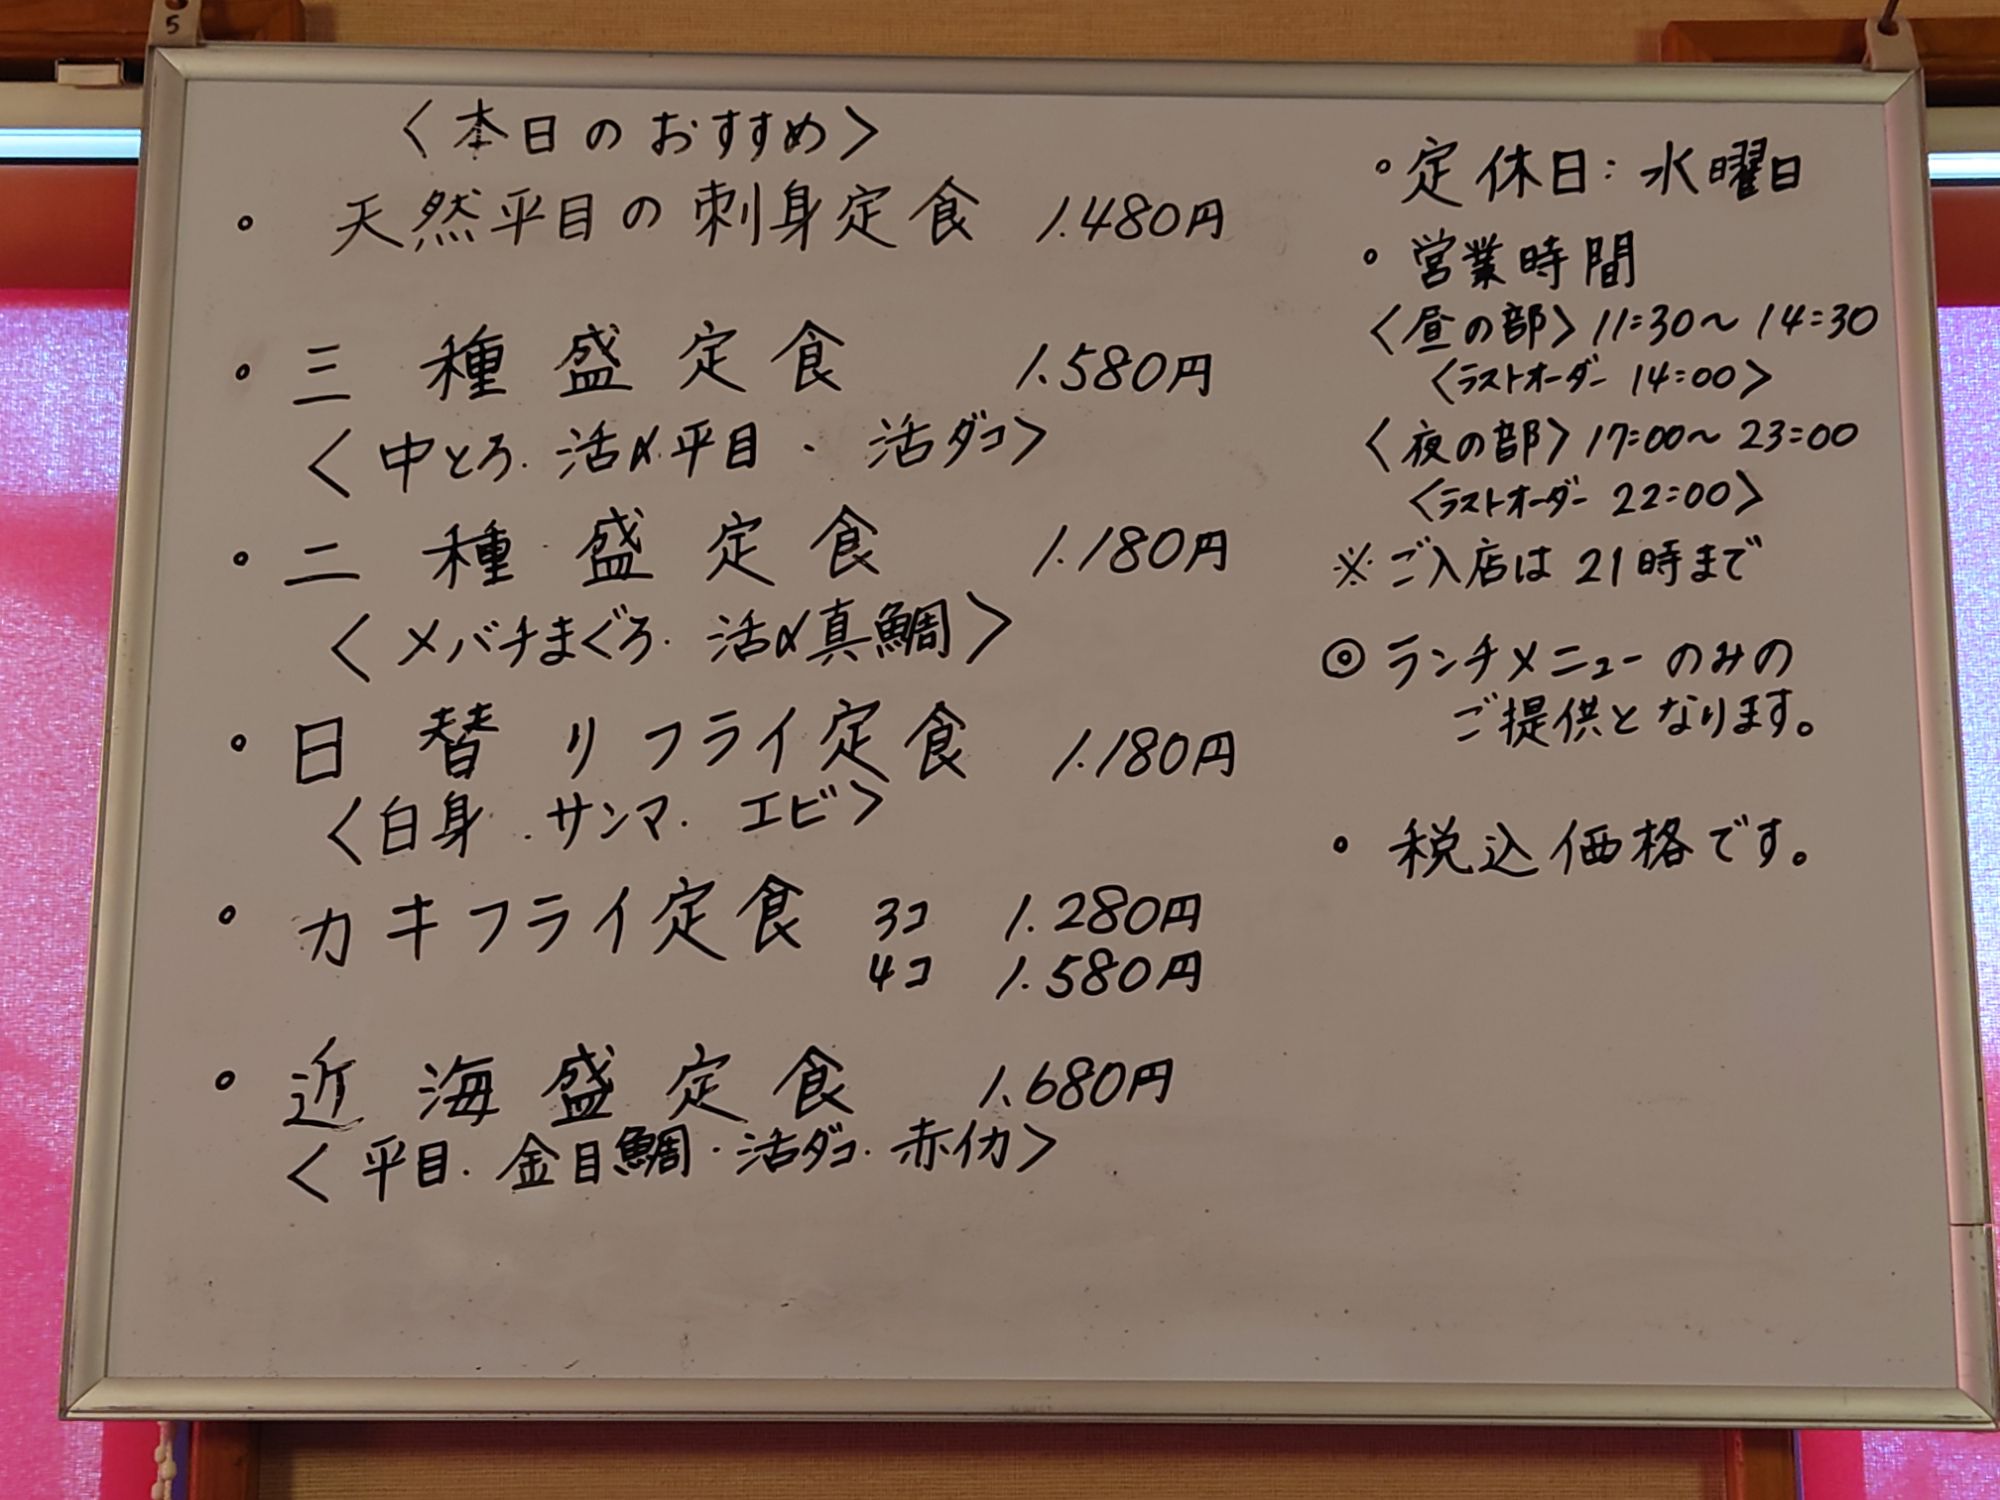 〈本日のおすすめ〉
• 天然平目の刺身定食 1.480円
• 三種盛定食 1.580円
〈中とろ.活〆平目・活ダコ〉
• 二種盛定食 1.180円
〈メバチまぐろ.活〆真鯛〉
• 日替りフライ定食 1.180円
〈白身.サンマ.エビ〉
• カキフライ定食 3コ 1.280円
4コ 1.580円
• 近海盛定食 1.680円
〈平目.金目鯛.活ダコ.赤イカ〉
• 定休日:水曜日
• 営業時間
〈昼の部〉11:30〜14:30
〈ラストオーダー 14:00〉
〈夜の部〉17:00〜23:00
〈ラストオーダー 22:00〉
※ご入店は21時まで
◎ランチメニューのみの
ご提供となります。
• 税込価格です。
5